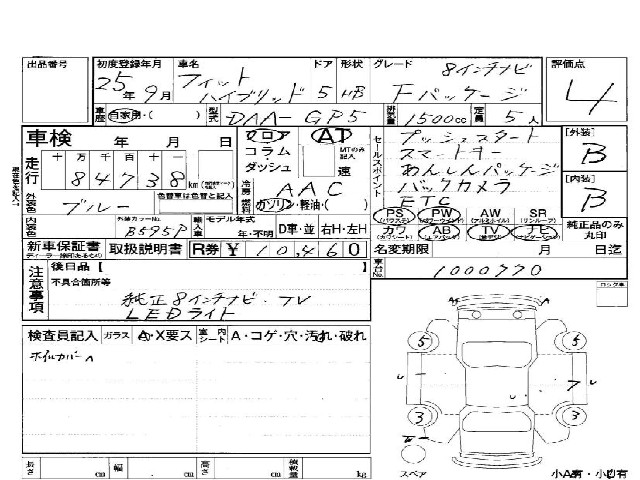 出品番号 初度登録年月 車名 ドア 形状 グレード 8インチナビ 評価点
25年9月 フィット ハイブリッド 5 HB Fパッケージ 4
車歴 自家用・( ) 型式 DAA-GP5 排気量 1500cc 定員 5人
車検 年 月 日 フロア AT プッシュスタート [外装]
走行 十 万 千 百 十 一 コラム・ダッシュ MTのみ記入 速 セールスポイント スマートキー B
84738 km 冷房 AAC あんしんパッケージ [内装]
外装色 ブルー 色替車は色替と記入 燃料 ガソリン・軽油・( ) バックカメラ B
ETC
内装色 外装カラーNo. B595P 輸入車 モデル年式 年・不明 D車・並 右H・左H PS PW AW SR 純正品のみ丸印
カワ AB TV ナビ
新車保証書 取扱説明書 R券 ¥10,460 名変期限 月 日迄
注意事項 後日品 [ ] 車台No. 1000770
不具合箇所等
純正8インチナビ・TV
LEDライト
検査員記入 ガラス A・X要ス 室内シート A・コゲ・穴・汚れ・破れ
ホイルカバーA
5 5
3 3
長さ cm 幅 cm 高さ cm 積載量 kg スペア 小A有・小U有